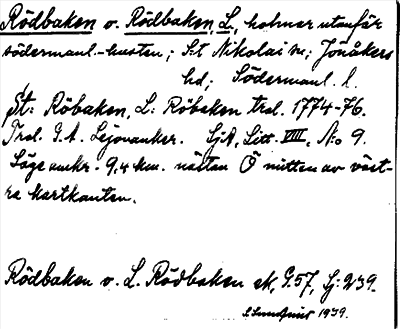 Rödbaken o. Rödbaken, L., holmar utanför
södermanl.-kusten; S:t Nikolai sn; Jönåkers
hd; Södermanl. l.
St: Röbaken, L: Röbaken trol. 1774-76.
Trol. G. A. Lejonanker. SjA, Litt. VIII, No 9.
Läge omkr. 9,4 km. nästan Ö mitten av väst-
ra kartkanten.
Rödbaken o. L. Rödbaken ek, G.57, Sj: 239.
1939.